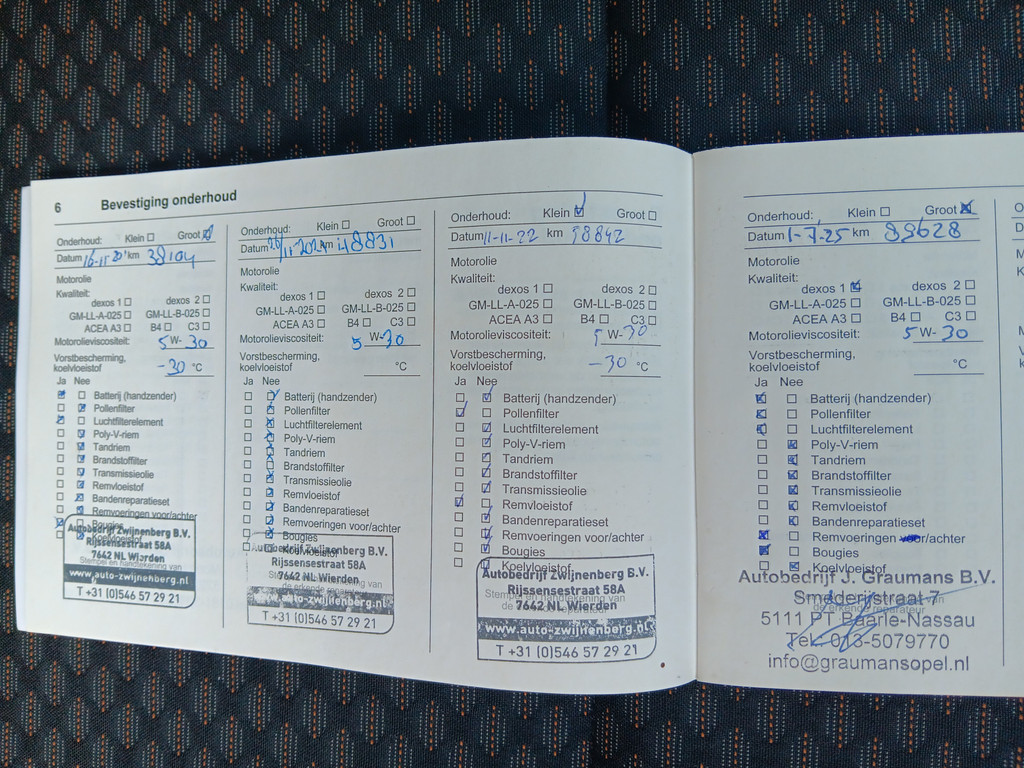 6 Bevestiging onderhoud
Onderhoud: Klein Groot
Datum km 38104
Motorolie
Kwaliteit:
dexos 1 dexos 2
GM-LL-A-025 GM-LL-B-025
ACEA A3 B4 C3
Motorolieviscositeit: 5 W- 30
Vorstbescherming,
koelvloeistof -30 °C
Ja Nee
Batterij (handzender)
Pollenfilter
Luchtfilterelement
Poly-V-riem
Tandriem
Brandstoffilter
Transmissieolie
Remvloeistof
Bandenreparatieset
Remvoeringen voor/achter
Bougies
Koelvloeistof
Autobedrijf Zwijnenberg B.V.
Rijssensestraat 58A
7642 NL Wierden
www.auto-zwijnenberg.nl
T +31 (0)546 57 29 21
Onderhoud: Klein Groot
Datum km 48831
Motorolie
Kwaliteit:
dexos 1 dexos 2
GM-LL-A-025 GM-LL-B-025
ACEA A3 B4 C3
Motorolieviscositeit: 5 W-30
Vorstbescherming,
koelvloeistof °C
Ja Nee
Batterij (handzender)
Pollenfilter
Luchtfilterelement
Poly-V-riem
Tandriem
Brandstoffilter
Transmissieolie
Remvloeistof
Bandenreparatieset
Remvoeringen voor/achter
Bougies
Koelvloeistof
Autobedrijf Zwijnenberg B.V.
Rijssensestraat 58A
7642 NL Wierden
Stempel en handtekening van
www.auto-zwijnenberg.nl
T +31 (0)546 57 29 21
Onderhoud: Klein Groot
Datum 11-11-22 km 58842
Motorolie
Kwaliteit:
dexos 1 dexos 2
GM-LL-A-025 GM-LL-B-025
ACEA A3 B4 C3
Motorolieviscositeit: 5 W-30
Vorstbescherming,
koelvloeistof -30 °C
Ja Nee
Batterij (handzender)
Pollenfilter
Luchtfilterelement
Poly-V-riem
Tandriem
Brandstoffilter
Transmissieolie
Remvloeistof
Bandenreparatieset
Remvoeringen voor/achter
Bougies
Koelvloeistof
Autobedrijf Zwijnenberg B.V.
Rijssensestraat 58A
Stempel en handtekening van
7642 NL Wierden
de erkende reparateur
www.auto-zwijnenberg.nl
T +31 (0)546 57 29 21
Onderhoud: Klein Groot
Datum 1-7-25 km 88628
Motorolie
Kwaliteit:
dexos 1 dexos 2
GM-LL-A-025 GM-LL-B-025
ACEA A3 B4 C3
Motorolieviscositeit: 5 W- 30
Vorstbescherming,
koelvloeistof °C
Ja Nee
Batterij (handzender)
Pollenfilter
Luchtfilterelement
Poly-V-riem
Tandriem
Brandstoffilter
Transmissieolie
Remvloeistof
Bandenreparatieset
Remvoeringen voor/achter
Bougies
Koelvloeistof
Autobedrijf J. Graumans B.V.
Smederijstraat 7
de erkende reparateur
5111 PT Baarle-Nassau
Tel. 013-5079770
info@graumansopel.nl